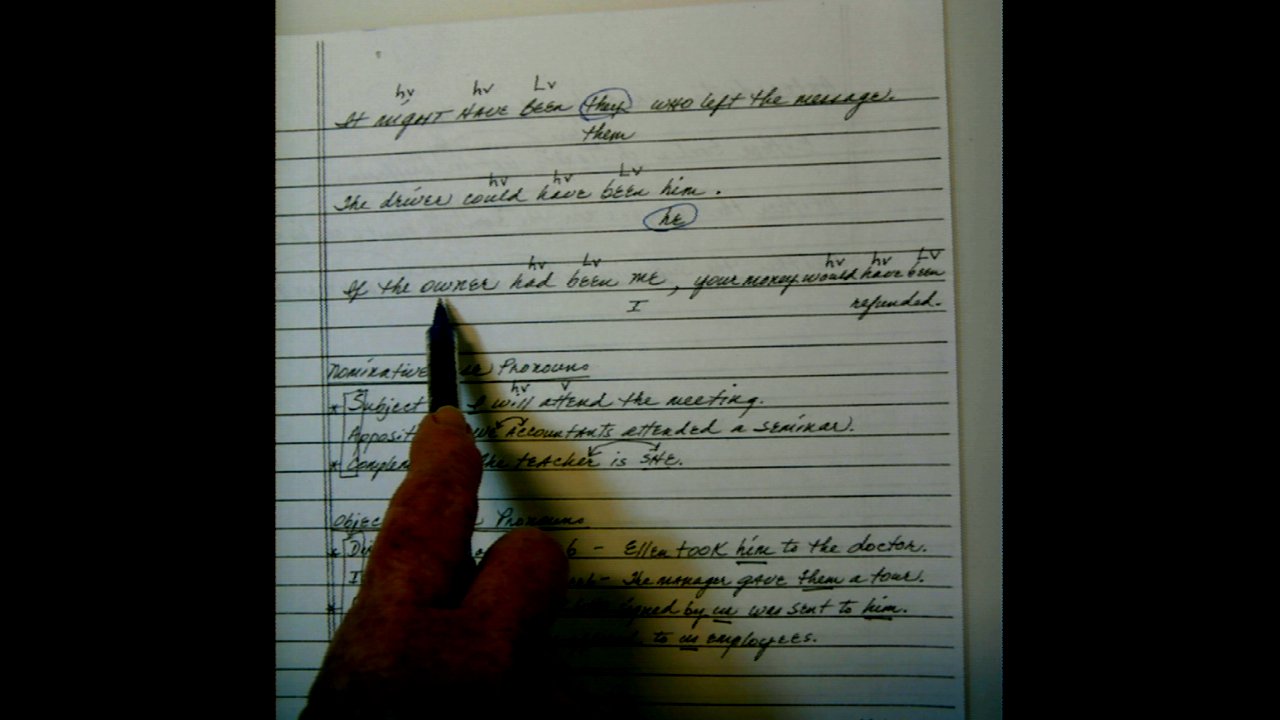 hv hv Lv
It might HAVE BEEN they who left the message.
them
hv hv Lv
The driver could have been him.
he
hv Lv hv hv LV
If the owner had been ME, your money would have been
I refunded.
Nominative Pronouns
hv v
* Subject I will attend the meeting.
Apposit we Accountants attended a seminar.
* Complem the teacher is SHE.
Objec Pronouns
* Di - Ellen took him to the doctor.
I - The manager gave them a tour.
* signed by us was sent to him.
to us employees.